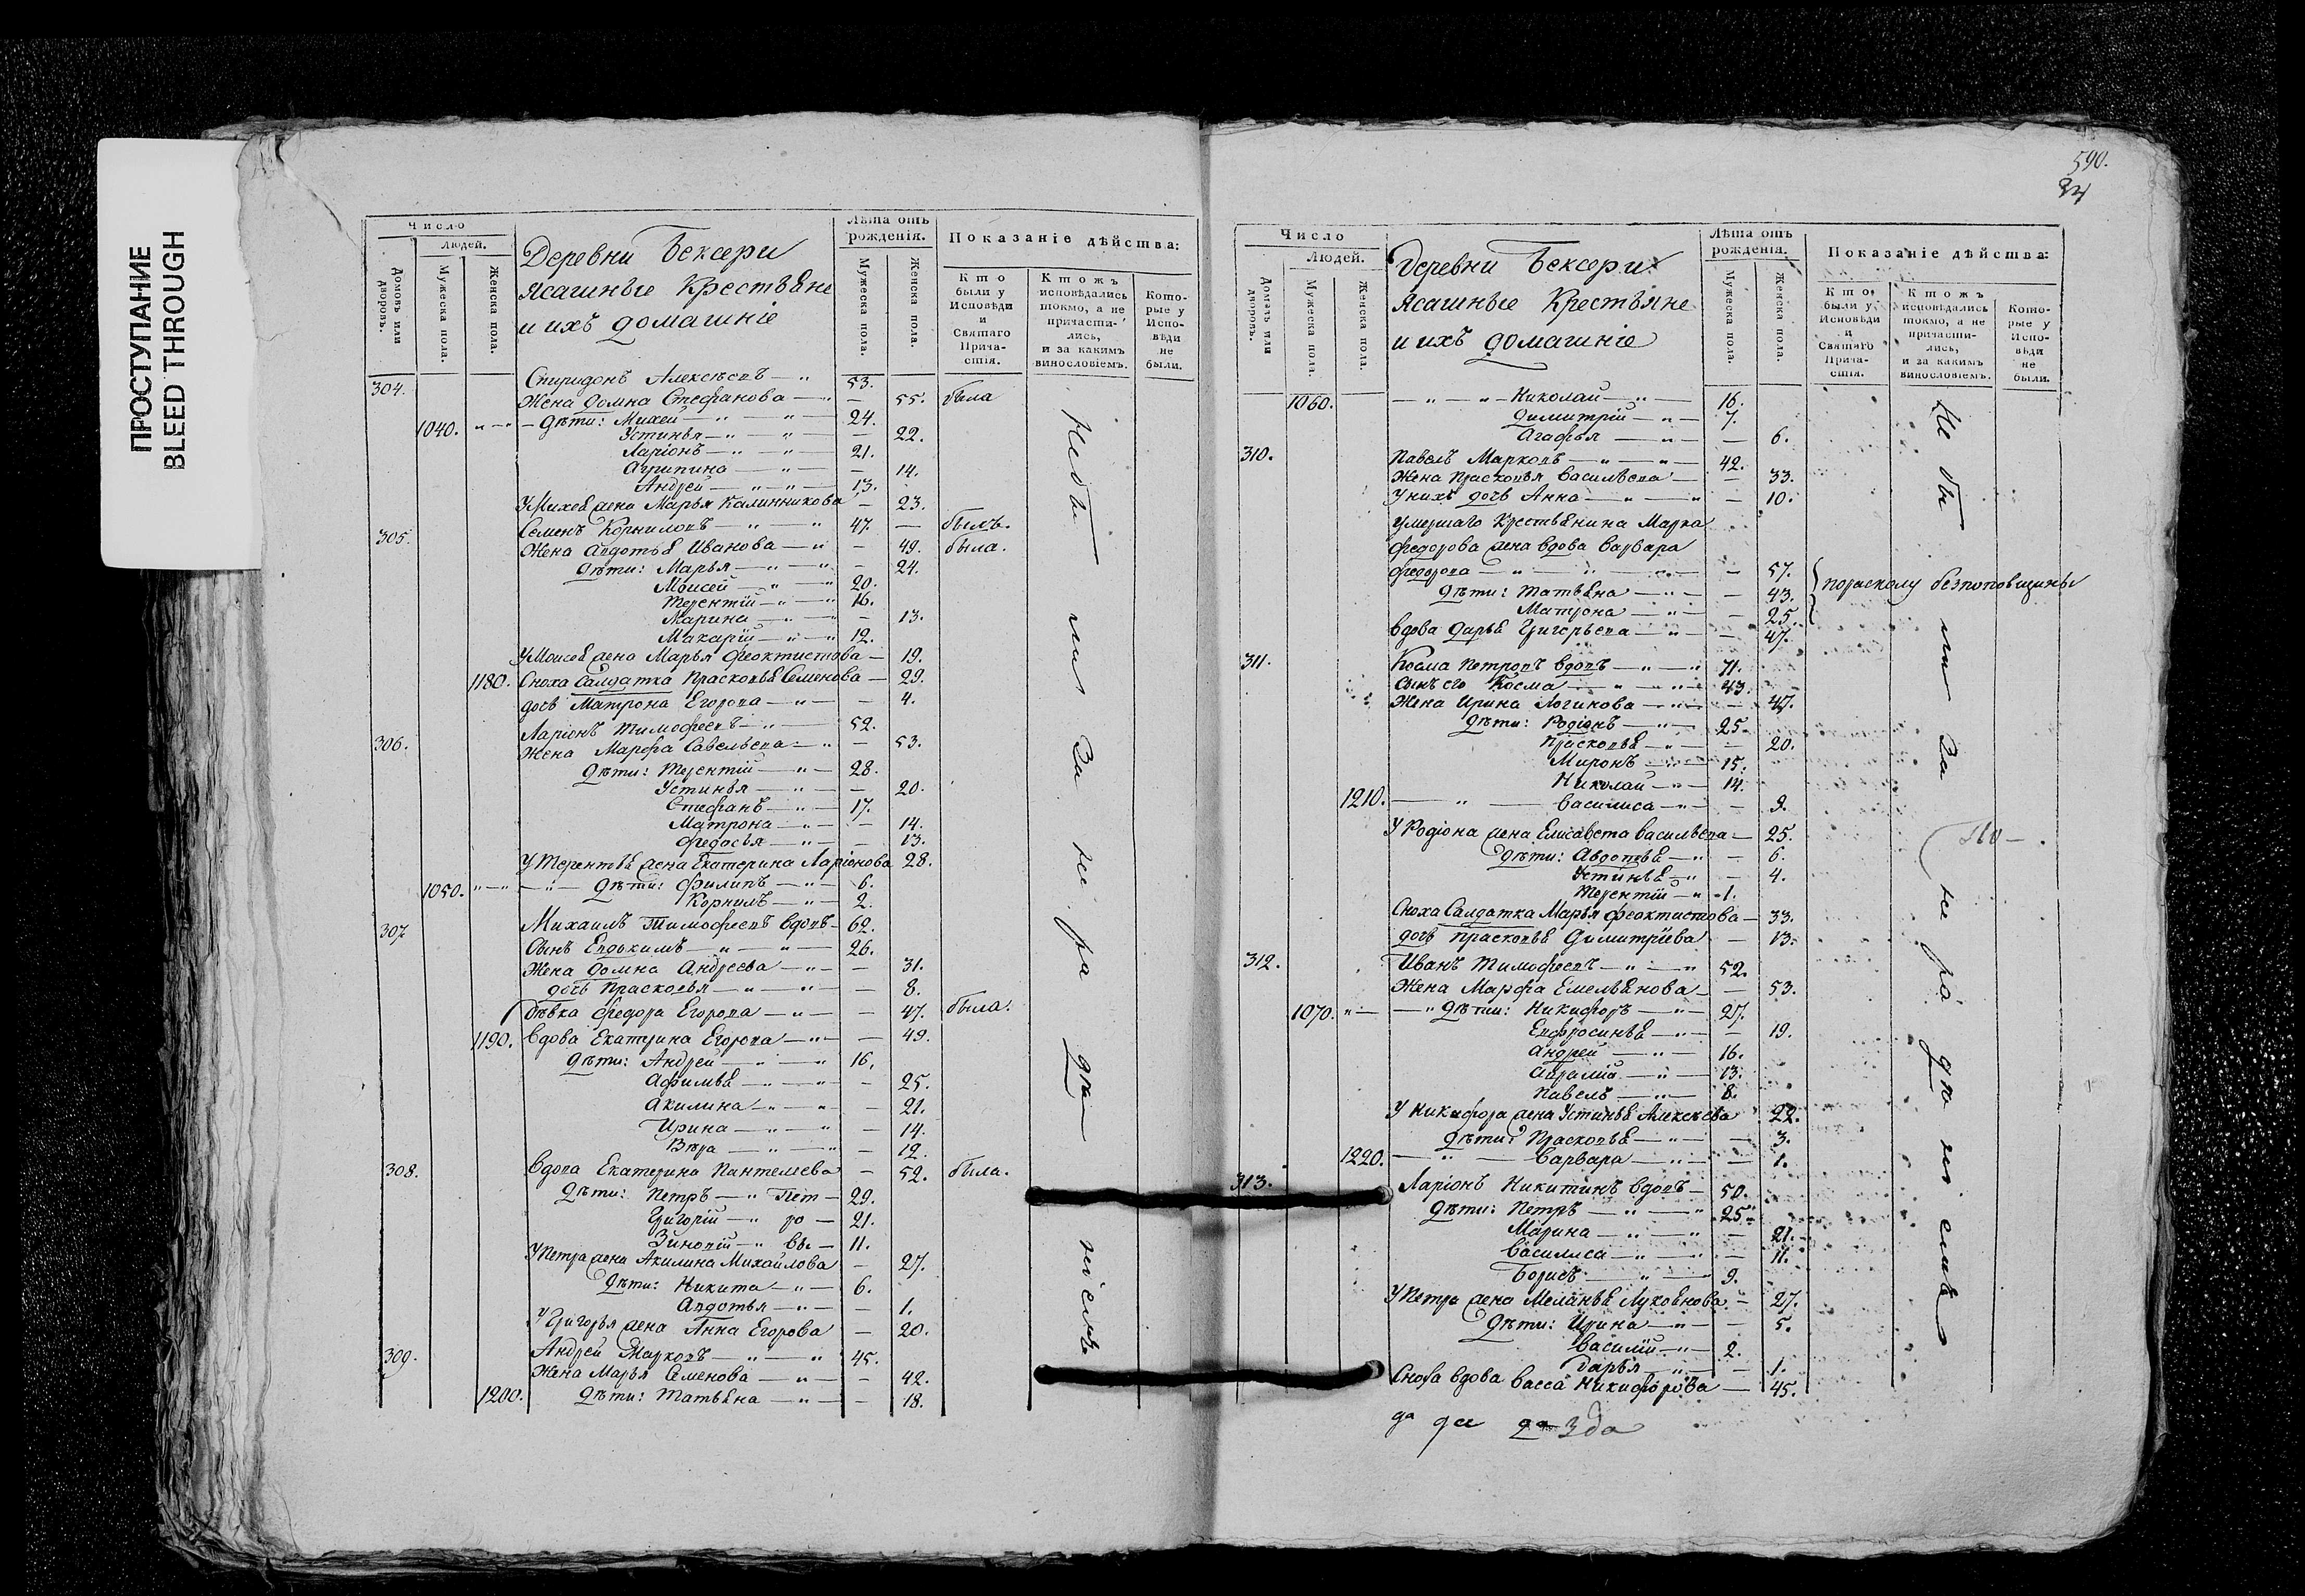 ПРОСТУПАНИЕ
BLEED THROUGH
Число
Людей.
Домовъ или дворовъ.
Мужеска пола.
Женска пола.
Деревни Бексери
Ясашные Крестьяне
и ихъ домашніе
Лѣта отъ рожденія.
Мужеска пола.
Женска пола.
Показаніе дѣйства:
Кто были у Исповѣди и Святаго Причастія.
Ктожъ исповѣдались токмо, а не причастились, и за какимъ винословіемъ.
Которые у Исповѣди не были.
304. Спиридонъ Алексѣевъ — 53.
Жена Домна Стефанова — 55. была
1040. Дѣти: Михей — 24.
Устинья — 22.
Ларіонъ — 21.
Агрипина — 14.
Андрей — 13.
У Михея жена Марья Калинникова — 23.
305. Семенъ Корниловъ — 47. — былъ.
Жена Авдотья Иванова — 49. была.
Дѣти: Марья — 24.
Моисей — 20.
Терентій — 16.
Марина — 13.
Макарій — 12.
У Моисея жена Марья Феоктистова — 19.
1180. Сноха Салдатка Прасковья Семенова — 29.
дочь Матрона Егорова — 4.
306. Ларіонъ Тимофеевъ — 52.
Жена Марфа Савельева — 53.
Дѣти: Терентій — 28.
Устинья — 20.
Стефанъ — 17.
Матрона — 14.
Федосья — 13.
У Терентья жена Екатерина Ларіонова 28.
1050. Дѣти: Филипъ — 6.
Корнилъ — 2.
307 Михаилъ Тимофеевъ вдовъ — 62.
Сынъ Евдокимъ — 26.
Жена Домна Андреева — 31.
дочь Прасковья — 8.
Дѣвка Федора Егорова — 47. была.
1190. Вдова Екатерина Егорова — 49.
Дѣти: Андрей — 16.
Афимья — 25.
Акилина — 21.
Ирина — 14.
Вѣра — 12.
308. Вдова Екатерина Пантелеева — 52. была.
Дѣти: Петръ — Пет — 29.
Григорій — ро — 21.
Зиновій — вы — 11.
У Петра жена Акилина Михайлова — 27.
Дѣти: Никита — 6.
Авдотья — 1.
У Григорья жена Анна Егорова — 20.
309. Андрей Марковъ — 45.
Жена Марья Семенова — 42.
1200. Дѣти: Татьяна — 18.
Небыли За нерадѣніемъ
590.
Число
Людей.
Домовъ или дворовъ.
Мужеска пола.
Женска пола.
Деревни Бексери
Ясашные Крестьяне
и ихъ домашніе
Лѣта отъ рожденія.
Мужеска пола.
Женска пола.
Показаніе дѣйства:
Кто были у Исповѣди и Святаго Причастія.
Ктожъ исповѣдались токмо, а не причастились, и за какимъ винословіемъ.
Которые у Исповѣди не были.
1060. Николай — 16.
Димитрій — 7.
Агафья — 6.
310. Павелъ Марковъ — 42.
Жена Прасковья Васильева — 33.
У нихъ дочь Анна — 10.
Умершаго Крестьянина Марка
Федорова жена вдова Варвара
Федорова — 57.
Дѣти: Татьяна — 43.
Матрона — 25.
порасколу безпоповщины
Вдова Дарья Григорьева — 47.
311. Косма Петровъ вдовъ — 71.
Сынъ его Косма — 43.
Жена Ирина Логинова — 47.
Дѣти: Родіонъ — 25.
Прасковья — 20.
Миронъ — 15.
Николай — 14.
1210. Василиса — 9.
У Родіона жена Елисавета Васильева — 25.
Дѣти: Авдотья — 6.
Устинья — 4.
Терентій — 1.
Сноха Салдатка Марья Феоктистова — 33.
дочь Прасковья Димитріева — 13.
312. Иванъ Тимофеевъ — 52.
Жена Марфа Емельянова — 53.
1070. Дѣти: Никифоръ — 27.
Евфросинья — 19.
Андрей — 16.
Аврамій — 13.
Павелъ — 8.
У Никифора жена Устинья Алексѣева 22.
Дѣти: Прасковья — 3.
1220. Варвара — 1.
313. Ларіонъ Никитинъ вдовъ — 50.
Дѣти: Петръ — 25.
Марина — 21.
Василиса — 11.
Борисъ — 9.
У Петра жена Меланья Лукоянова — 27.
Дѣти: Ирина — 5.
Василій — 2.
Дарья — 1.
Сноха вдова Васса Никифорова — 45.
Не были За нерадѣніемъ